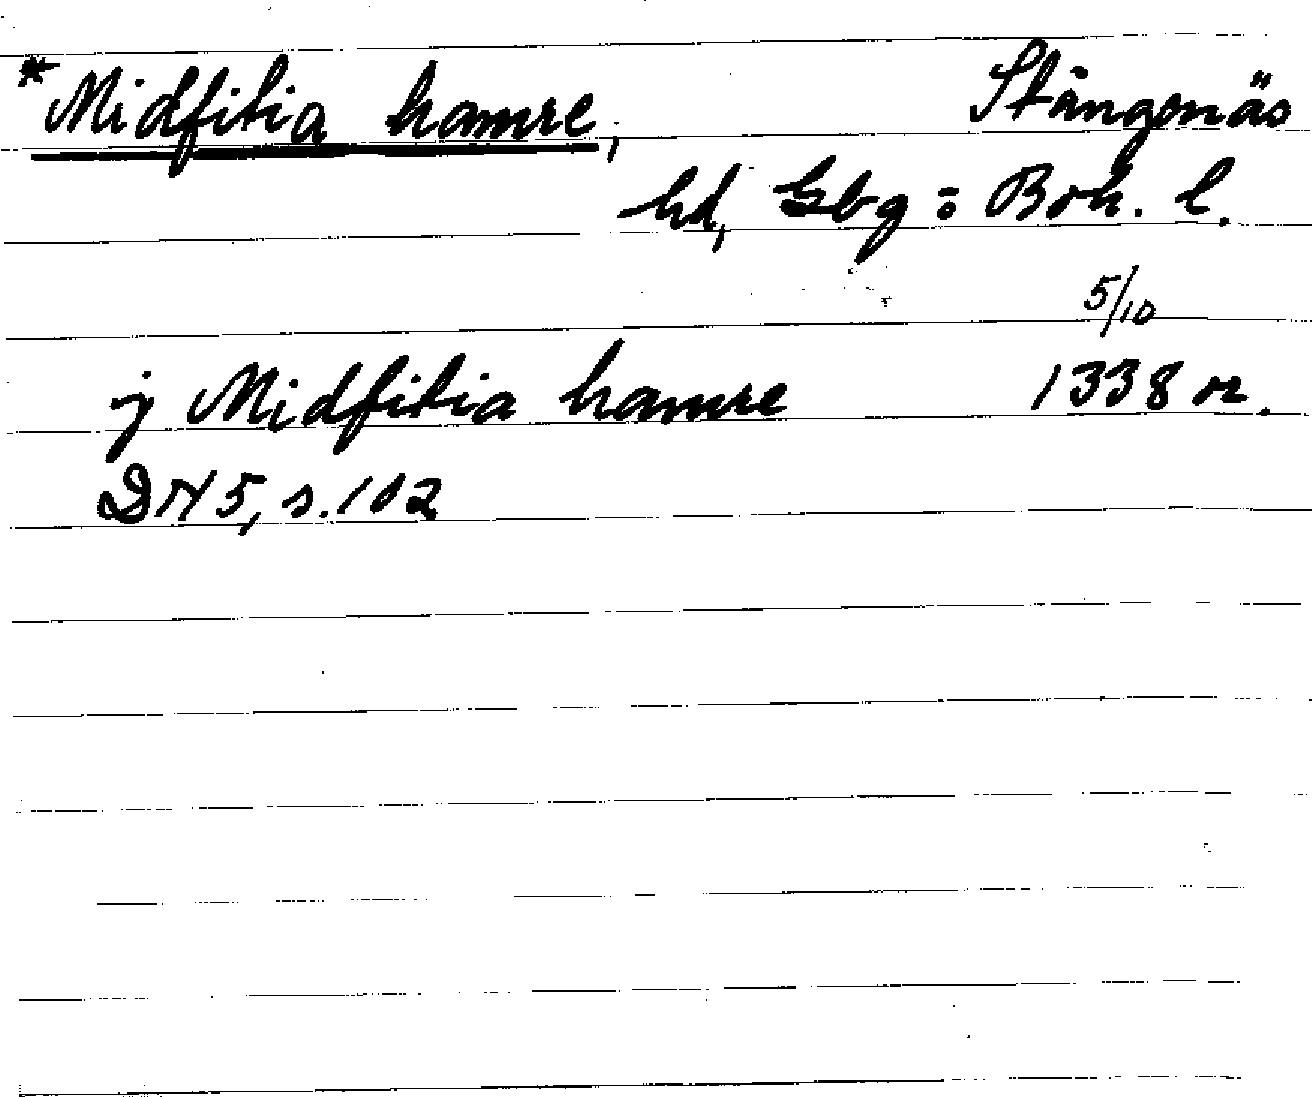 *Midfitia hamre, Stångenäs
hd, Gbg o Boh. l.
5/10
j Midfitia hamre 1338 or.
DN 5, s. 102